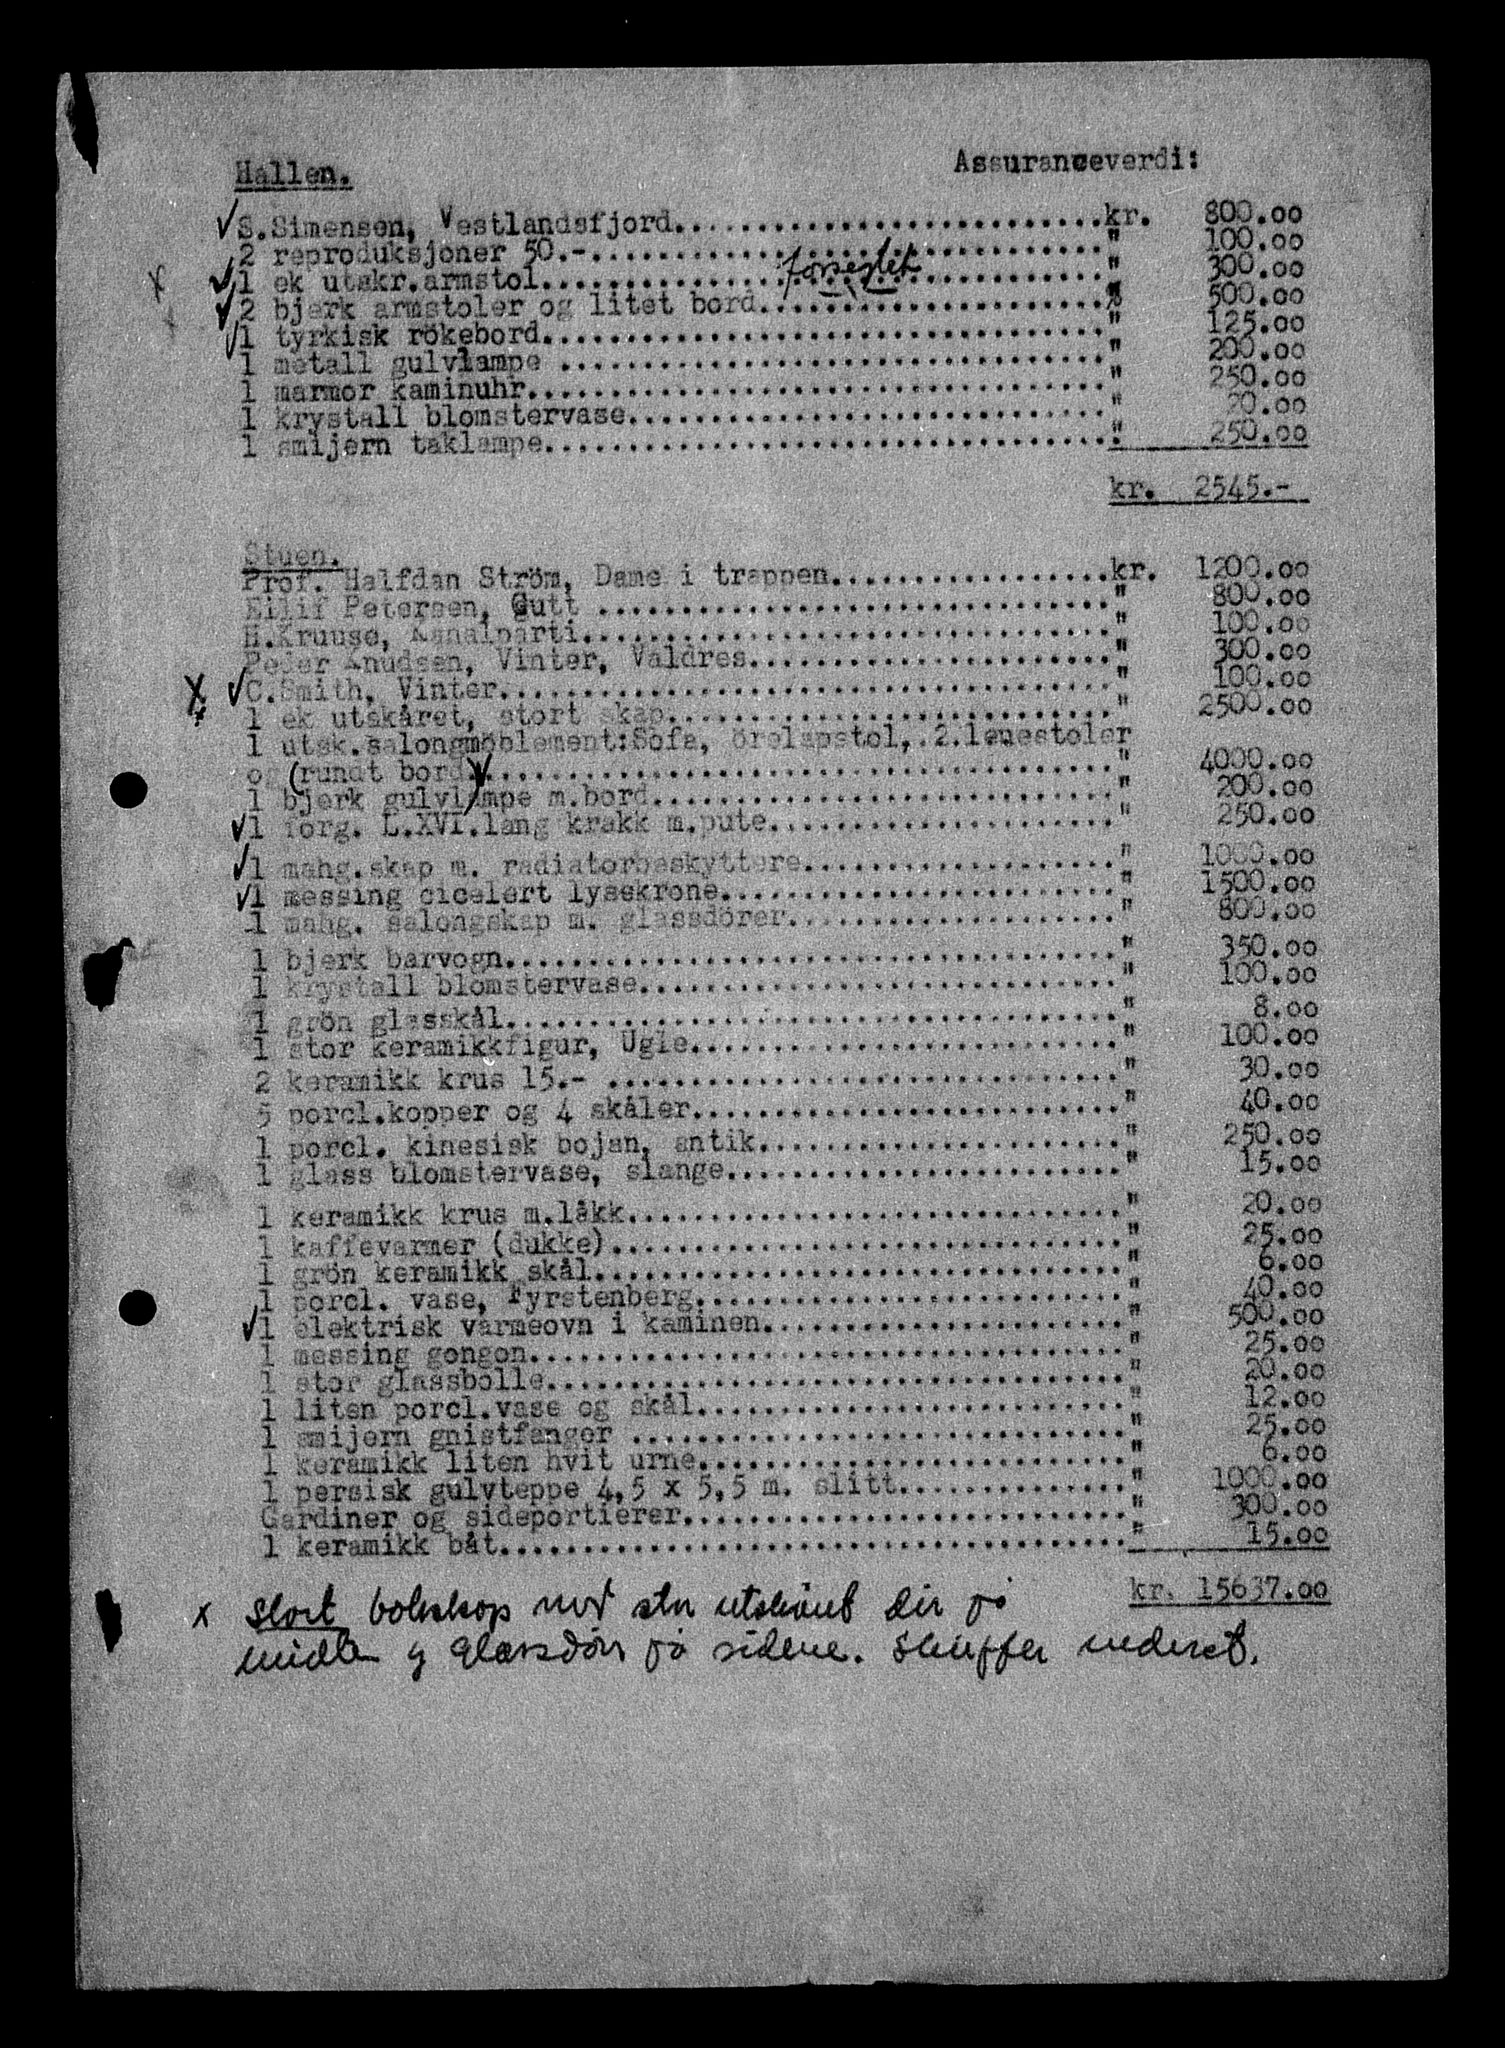 Hallen. Assuranceverdi:
S.Simensen, Vestlandsfjord............................kr. 800.00
2 reproduksjoner 50.-................................." 100.00
forseglet
1 ek utskr.armstol...................................." 300.00
2 bjerk armstoler og litet bord......................." 500.00
1 tyrkisk rökebord...................................." 125.00
1 metall gulvlampe ..................................." 200.00
1 marmor kaminuhr....................................." 250.00
1 krystall blomstervase..............................." 20.00
1 smijern taklampe...................................." 250.00
kr. 2545.-
Stuen.
Prof. Halfdan Ström, Dame i trappen..................kr. 1200.00
Eilif Petersen, Gutt ................................." 800.00
H.Kruuse, Kanalparti.................................." 100.00
Peder Knudsen, Vinter, Valdres........................" 300.00
x C.Smith, Vinter......................................." 100.00
1 ek utskåret, stort skap............................." 2500.00
1 utsk.salongmöblement:Sofa, örelapstol, 2 lenestoler
og (rundt bord)......................................." 4000.00
1 bjerk gulvlampe m.bord.............................." 200.00
1 forg. L.XVI.lang krakk m.pute......................." 250.00
1 mahg.skap m. radiatorbeskyttere....................." 1000.00
1 messing cicelert lysekrone.........................." 1500.00
1 mahg. salongskap m. glassdörer......................" 800.00
1 bjerk barvogn......................................." 350.00
1 krystall blomstervase..............................." 100.00
1 grön glasskål......................................." 8.00
1 stor keramikkfigur, Ugle............................" 100.00
2 keramikk krus 15.- ................................." 30.00
5 porcl.kopper og 4 skåler............................" 40.00
1 porcl. kinesisk bojan, antik........................" 250.00
1 glass blomstervase, slange.........................." 15.00
1 keramikk krus m.låkk................................" 20.00
1 kaffevarmer (dukke)................................." 25.00
1 grön keramikk skål.................................." 6.00
1 porcl. vase, Fyrstenberg............................" 40.00
1 elektrisk varmeovn i kaminen........................" 500.00
1 messing gongon......................................" 25.00
1 stor glassbolle....................................." 20.00
1 liten porcl.vase og skål............................" 12.00
1 smijern gnistfanger ................................" 25.00
1 keramikk liten hvit urne............................" 6.00
1 persisk gulvteppe 4,5 x 5,5 m. slitt................" 1000.00
Gardiner og sideportierer............................." 300.00
1 keramikk båt........................................" 15.00
kr. 15637.00
x Stort bokskap med stor utskåret dör på
midten og glassdör på sidene. Skuffer underst.